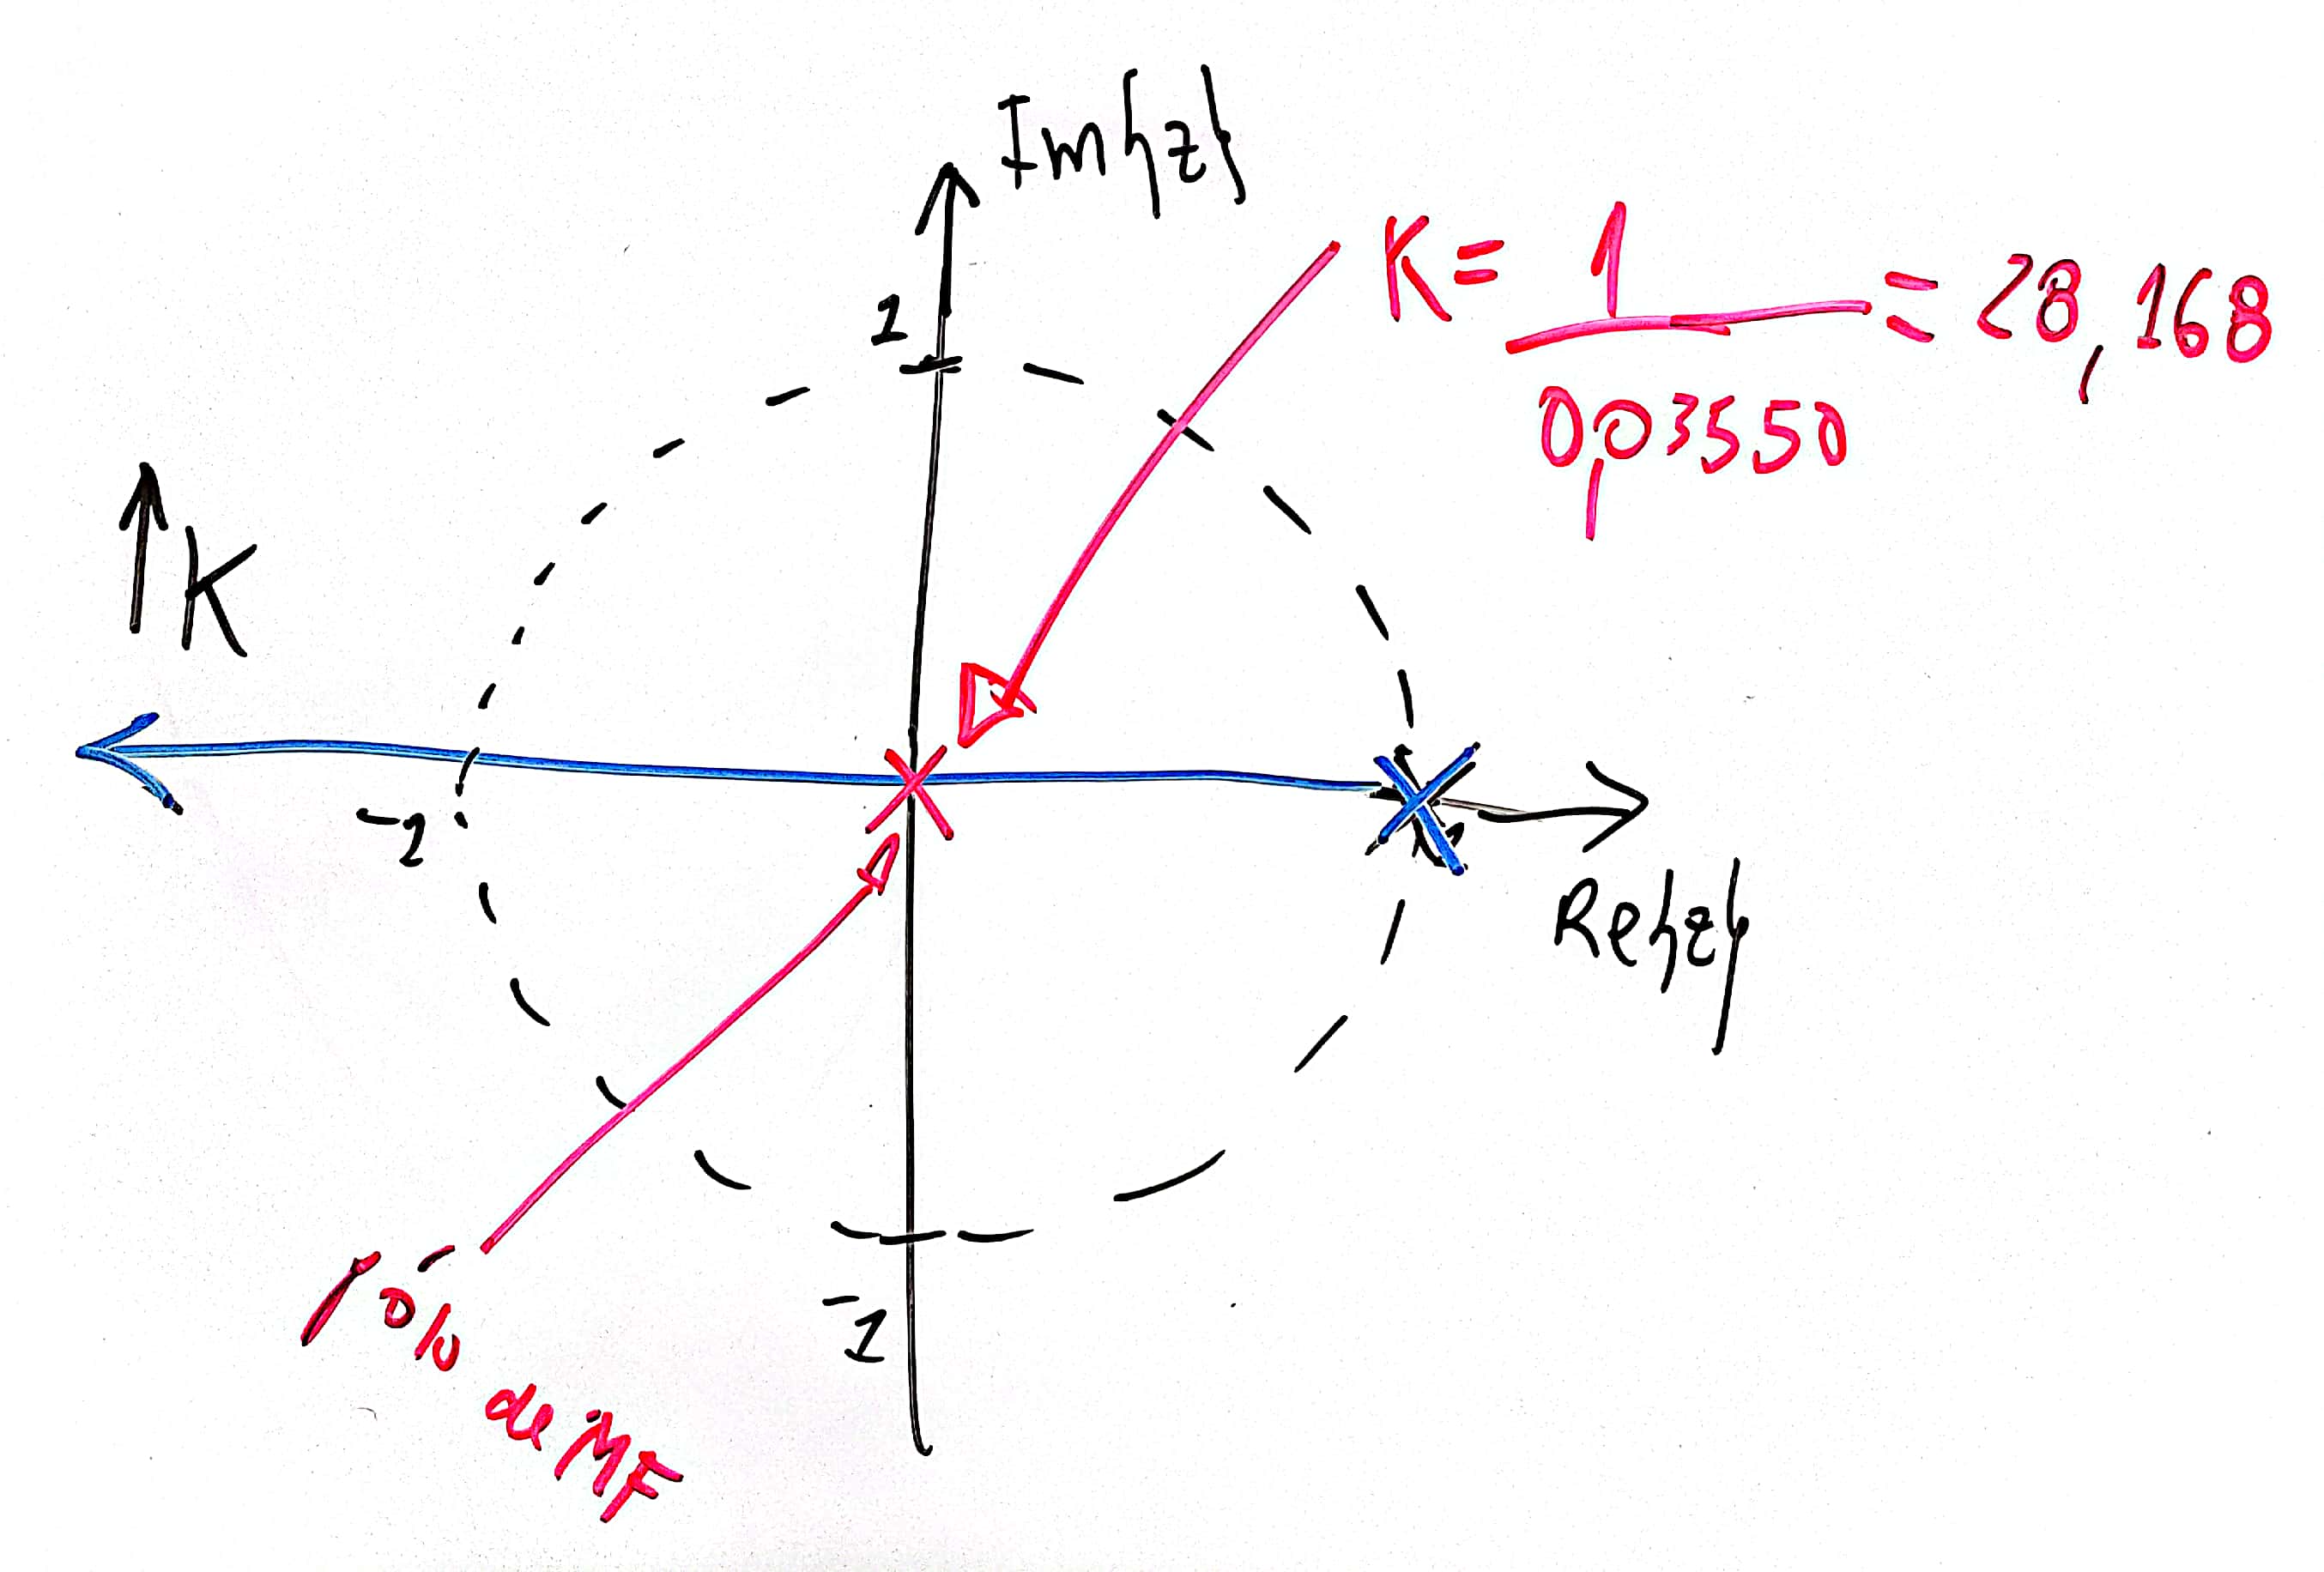 Im{z}
K = 1/0,03550 = 28,168
1
↑K
-1
1
Re{z}
-1
polo de MF